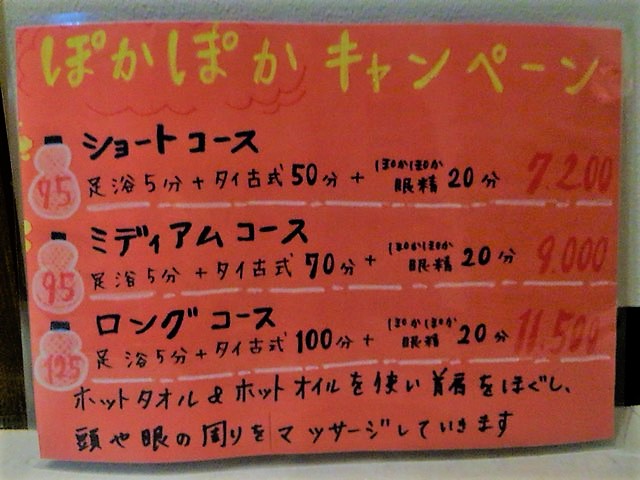 ぽかぽかキャンペーン
ショートコース
75
足浴5分+タイ古式50分+ぽかぽか眼精20分 7.200
ミディアムコース
95
足浴5分+タイ古式70分+ぽかぽか眼精20分 9.000
ロングコース
125
足浴5分+タイ古式100分+ぽかぽか眼精20分 11.500
ホットタオル&ホットオイルを使い首肩をほぐし、
頭や眼の周りをマッサージしていきます